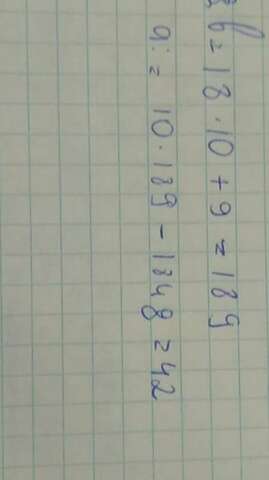 b = 18 · 10 + 9 = 189
a: = 10 · 189 - 1848 = 42